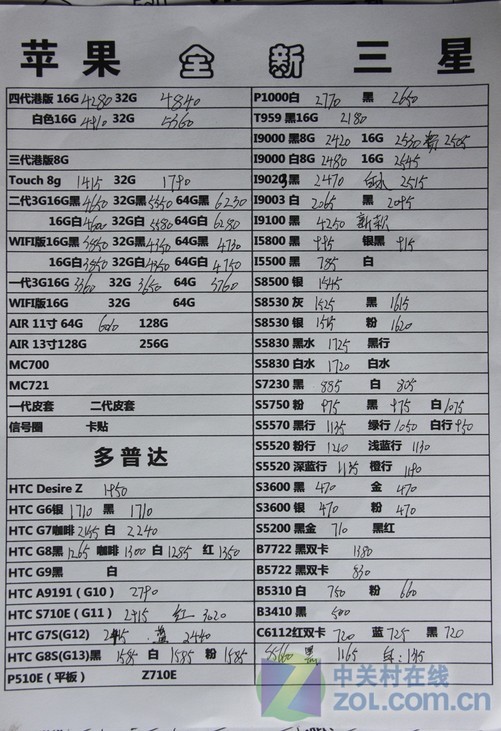 苹果 全新 三星
四代港版 16G 4280 32G 4840
白色16G 4410 32G 5360
三代港版8G
Touch 8g 1415 32G 1790
二代3G16G黑 4650 32G黑 5550 64G黑 6230
16G白 4600 32G白 5580 64G白 6280
WIFI版16G黑 3850 32G黑 4350 64G黑 4730
16G白 3850 32G白 4350 64G白 4750
一代3G16G 3360 32G 3650 64G 3760
WIFI版16G 32G 64G
AIR 11寸 64G 128G
AIR 13寸128G 256G
MC700
MC721
一代皮套 二代皮套
信号圈 卡贴
多普达
HTC Desire Z 1950
HTC G6银 1710 黑 1710
HTC G7咖啡 2165 白 2240
HTC G8黑 1265 咖啡 1300 白 1285 红 1350
HTC G9黑 白
HTC A9191 (G10) 2790
HTC S710E (G11) 2915 红 3020
HTC G7S(G12) 蓝 2440
HTC G8S(G13)黑 1585 白 1585 粉 1585
P510E (平板) Z710E
P1000白 2770 黑 2650
T959 黑16G 2180
I9000 黑8G 2420 16G 2530 2505
I9000 白8G 2480 16G 2545
I9023黑 2470 白 2515
I9003 白 2065 黑 2095
I9100 黑 4250 新款
I5800 黑 995 银黑 915
I5500 黑 785 白
S8500 银 1545
S8530 灰 1525 黑 1615
S8530 银 1515 粉 1620
S5830 黑水 1725 黑行
S5830 白水 1720 白水
S7230 黑 885 白 805
S5750 粉 975 黑 975 白 1075
S5570 黑行 1135 绿行 1050 白行 950
S5520 粉行 1210 浅蓝行 1130
S5520 深蓝行 1135 橙行 1190
S3600 黑 470 金 470
S3600 银 470 粉 470
S5200 黑金 710 黑红
B7722 黑双卡 1380
B5722 黑双卡 830
B5310 白 750 粉 660
B3410 黑 500
C6112红双卡 720 蓝 725 黑 720
S5660 黑 1165 白
中关村在线
ZOL.COM.CN